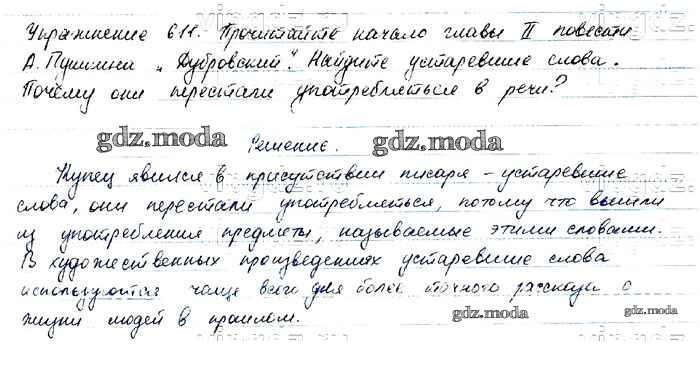 Упражнение 611. Прочитайте начало главы II повести
А. Пушкина „Дубровский". Найдите устаревшие слова.
Почему они перестали употребляться в речи?
gdz.moda Решение. gdz.moda
Купец явился в присутствии писаря – устаревшие
слова, они перестали употребляться, потому что вышли
из употребления предметы, называемые этими словами.
В художественных произведениях устаревшие слова
используются чаще всего для более точного рассказа о
жизни людей в прошлом.
gdz.moda
gdz.moda